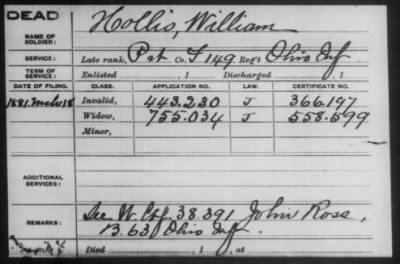 DEAD
Hollis, William
NAME OF SOLDIER:
SERVICE: Late rank, Pvt Co. I 149 Reg't Ohio Inf
TERM OF SERVICE: Enlisted , 1 Discharged , 1
DATE OF FILING. CLASS. APPLICATION NO. LAW. CERTIFICATE NO.
1881 Mch 18 Invalid, 443.230 J 366.197
Widow, 755.034 J 558.599
Minor,
ADDITIONAL SERVICES:
REMARKS: See W. Ctf. 38.391 John Ross,
B. 63 Ohio Inf.
Died , 1 , at